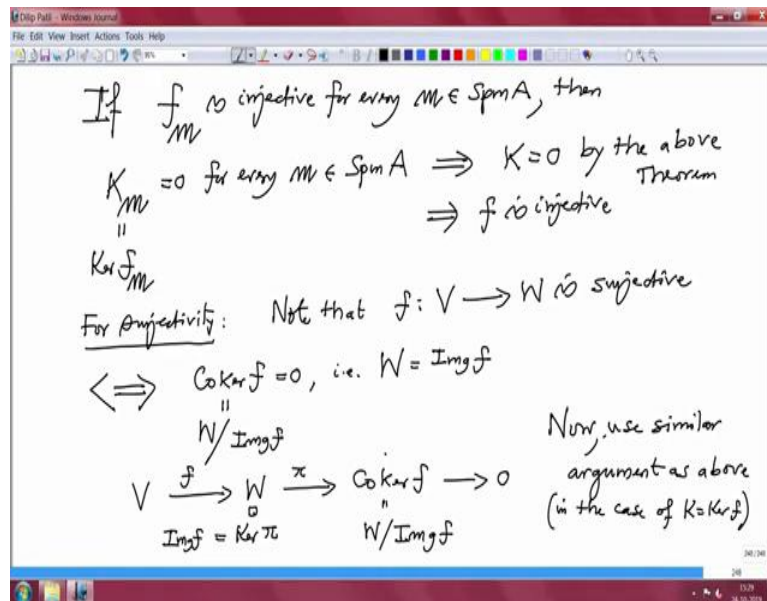 Dilip Patil - Windows Journal
File Edit View Insert Actions Tools Help
If f_m is injective for every m ∈ Spm A, then
K_m = 0 for every m ∈ Spm A ⟹ K = 0 by the above Theorem
||
⟹ f is injective
Ker f_m
For Surjectivity: Note that f: V ⟶ W is surjective
⟺ Coker f = 0, i.e. W = Img f
||
W/Img f
V ⟶^f W ⟶^π Coker f ⟶ 0
Img f = Ker π
||
W/Img f
Now, use similar
argument as above
(in the case of K = Ker f)
248
15:29